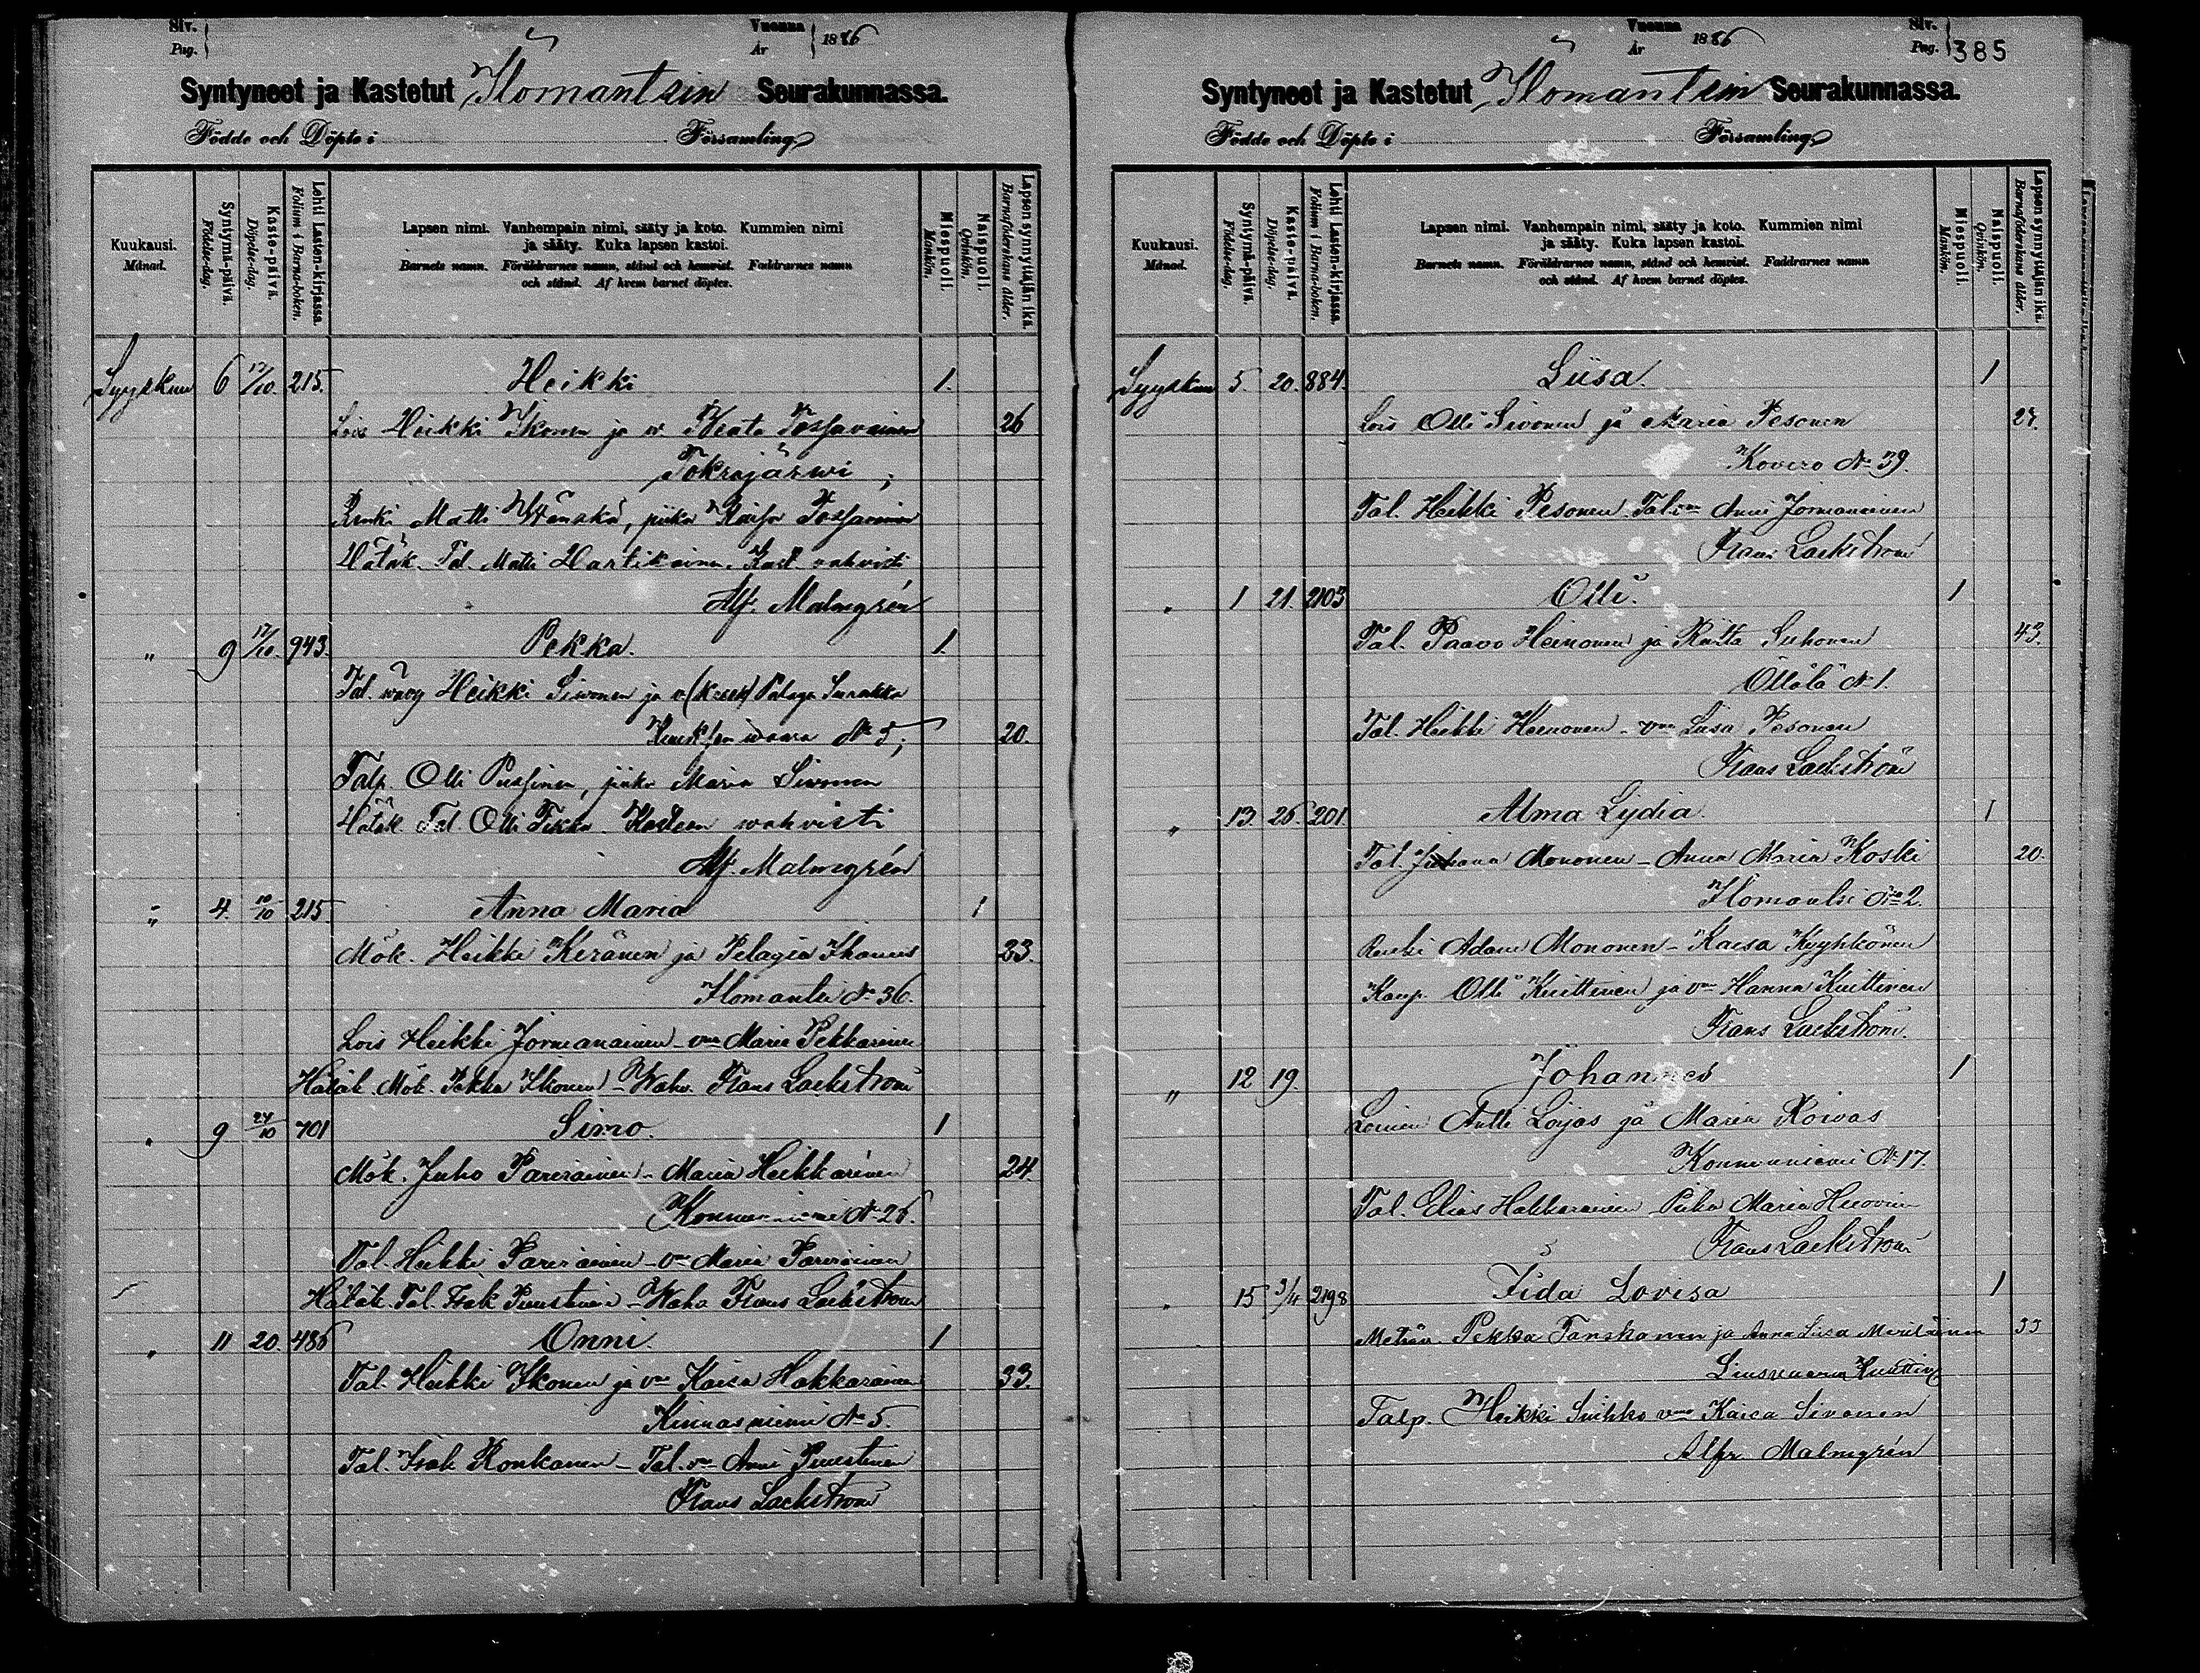 Siv.
Pag.
Vuonna
År
1886
Syntyneet ja Kastetut Ilomantsin Seurakunnassa.
Födde och Döpte i Församling
Kuukausi.
Månad.
Syntymä-päivä.
Födelse-dag.
Kaste-päivä.
Döpelse-dag.
Lehti Lasten-kirjassa.
Folium i Barna-boken.
Lapsen nimi. Vanhempain nimi, sääty ja koto. Kummien nimi
ja sääty. Kuka lapsen kastoi.
Barnets namn. Föräldrarnes namn, stånd och hemvist. Faddrarnes namn
och stånd. Af hvem barnet döptes.
Miespuoli.
Mankön.
Naispuoli.
Qvinkön.
Lapsen synnyttäjän ikä.
Barnaföderskans ålder.
Syyskuu 6 17/10. 215. Heikki 1.
Lois Heikki Ikonen ja v. Beata Tossavainen 26
Tokrajärwi ;
Renki Matti Wänskä, piika Kaisa Tossavainen
Hätäk. Tal. Matti Hartikainen. Kast. vahvisti
Alf. Malmgrén
" 9 17/10. 943. Pekka. 1.
Tal. wävy Heikki Siwonen ja v. (kreek) Palaga Surakka
No 5; 20.
Talp. Olli Pussinen, piika Maria Siwonen
Hätäk. Tal. Olli Tikka. Kasteen wahvisti
Alf. Malmgrén
" 4. 10/10 215 Anna Maria 1
Mök. Heikki Keränen ja Pelagia Ikonen 23.
Ilomantsi No 36.
Lois Heikki Jormanainen - vmo Maria Pekkarinen
Hätäk. Mök. Pekka Ikonen - Wahv. Frans Lackström
" 9 24/10 701 Simo. 1
Mök. Juho Parviainen - Maria Heikkarinen 24.
Konnunniemi No 26.
Tal. Heikki Parviainen - vmo Maria Parviainen
Hätäk. Tal. Isak Puustinen - Wahv. Frans Lackström
" 11 20. 486 Onni. 1
Tal. Heikki Ikonen ja vmo Kaisa Hakkarainen 33.
Kinnasniemi No 5.
Tal. Isak Konkanen - Tal. vmo Anni Puustinen
Frans Lackström
Vuonna
År
1886
Siv.
Pag. 385
Syntyneet ja Kastetut Ilomantsin Seurakunnassa.
Födde och Döpte i Församling
Kuukausi.
Månad.
Syntymä-päivä.
Födelse-dag.
Kaste-päivä.
Döpelse-dag.
Lehti Lasten-kirjassa.
Folium i Barna-boken.
Lapsen nimi. Vanhempain nimi, sääty ja koto. Kummien nimi
ja sääty. Kuka lapsen kastoi.
Barnets namn. Föräldrarnes namn, stånd och hemvist. Faddrarnes namn
och stånd. Af hvem barnet döptes.
Miespuoli.
Mankön.
Naispuoli.
Qvinkön.
Lapsen synnyttäjän ikä.
Barnaföderskans ålder.
Syyskuu 5. 20. 884. Liisa. 1
Lois Olli Sivonen ja Maria Pesonen 27.
Kovero No 39.
Tal. Heikki Pesonen. Tal. vmo Anni Jormanainen
Frans Lackström
" 1 21. 2103 Olli. 1
Tal. Paavo Heinonen ja Riitta Suhonen 43.
Öllölä No 1.
Tal. Heikki Heinonen - vmo Liisa Pesonen
Frans Lackström
" 13. 26. 201. Alma Lydia. 1
Tal. Juhana Mononen - Anna Maria Koski 20.
Ilomantsi No 2.
Renki Adam Mononen - Kaisa Kyyhkönen
Kaup. Olli Kuittinen ja vmo Hanna Kuittinen
Frans Lackström.
" 12 19. Johannes 1
Loinen Antti Loijas ja Maria Koivas
Konnunniemi No 17.
Tal. Elias Hakkarainen - Piika Maria Huovin
Frans Lackström
" 15 3/11 2198 Iida Lovisa 1
Pekka Tanskanen ja Anna Liisa Meriläinen 33
Liusvaara
Talp. Heikki Suihko vmo Kaisa Sivonen
Alfr. Malmgrén